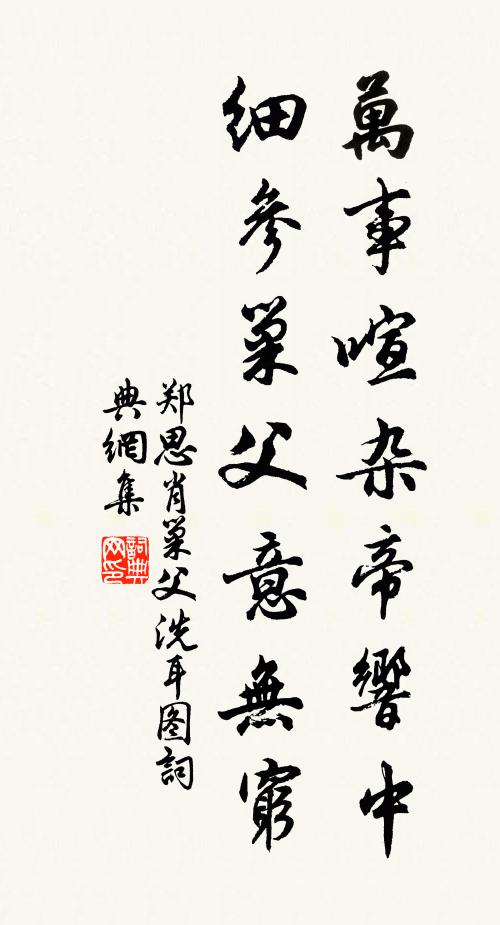 萬事喧杂帝響中
细參巢父意無窮
郑思肖巢父洗耳图詞
典網集
詞典
网印